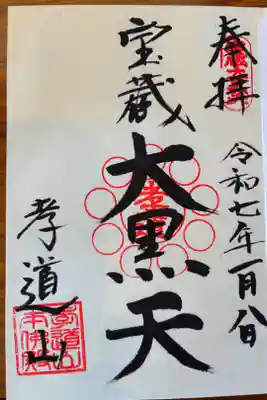 奉拝
令和七年一月八日
宝蔵
大黒天
孝道山